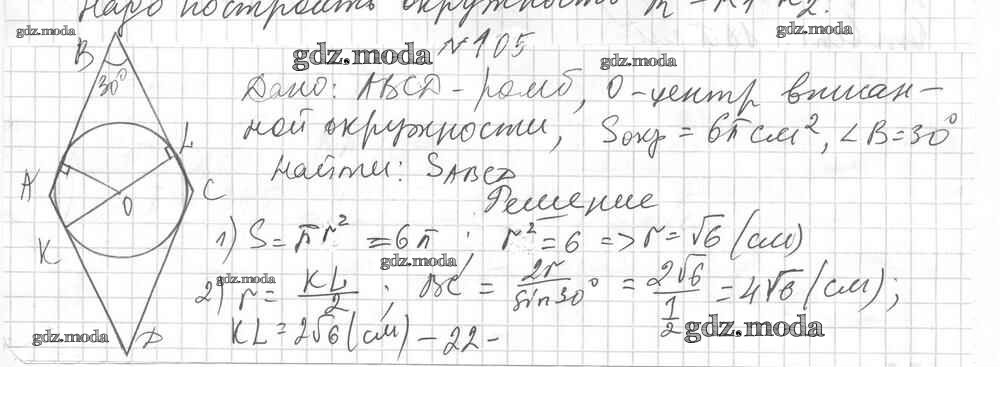 Надо построить окружность
gdz.moda
gdz.moda
gdz.moda
№105
gdz.moda
B
30°
Дано: ABCD - ромб, O - центр вписан-
ной окружности, Sокр = 6π см², ∠B = 30°
Найти: SABCD
A
L
C
O
K
D
Решение
1) S = πr² = 6π; r² = 6 => r = √6 (см)
gdz.moda
gdz.moda
2) r = KL/2; BC = 2r/sin30° = 2√6/(1/2) = 4√6 (см);
KL = 2√6 (см) - 22 -
gdz.moda
gdz.moda